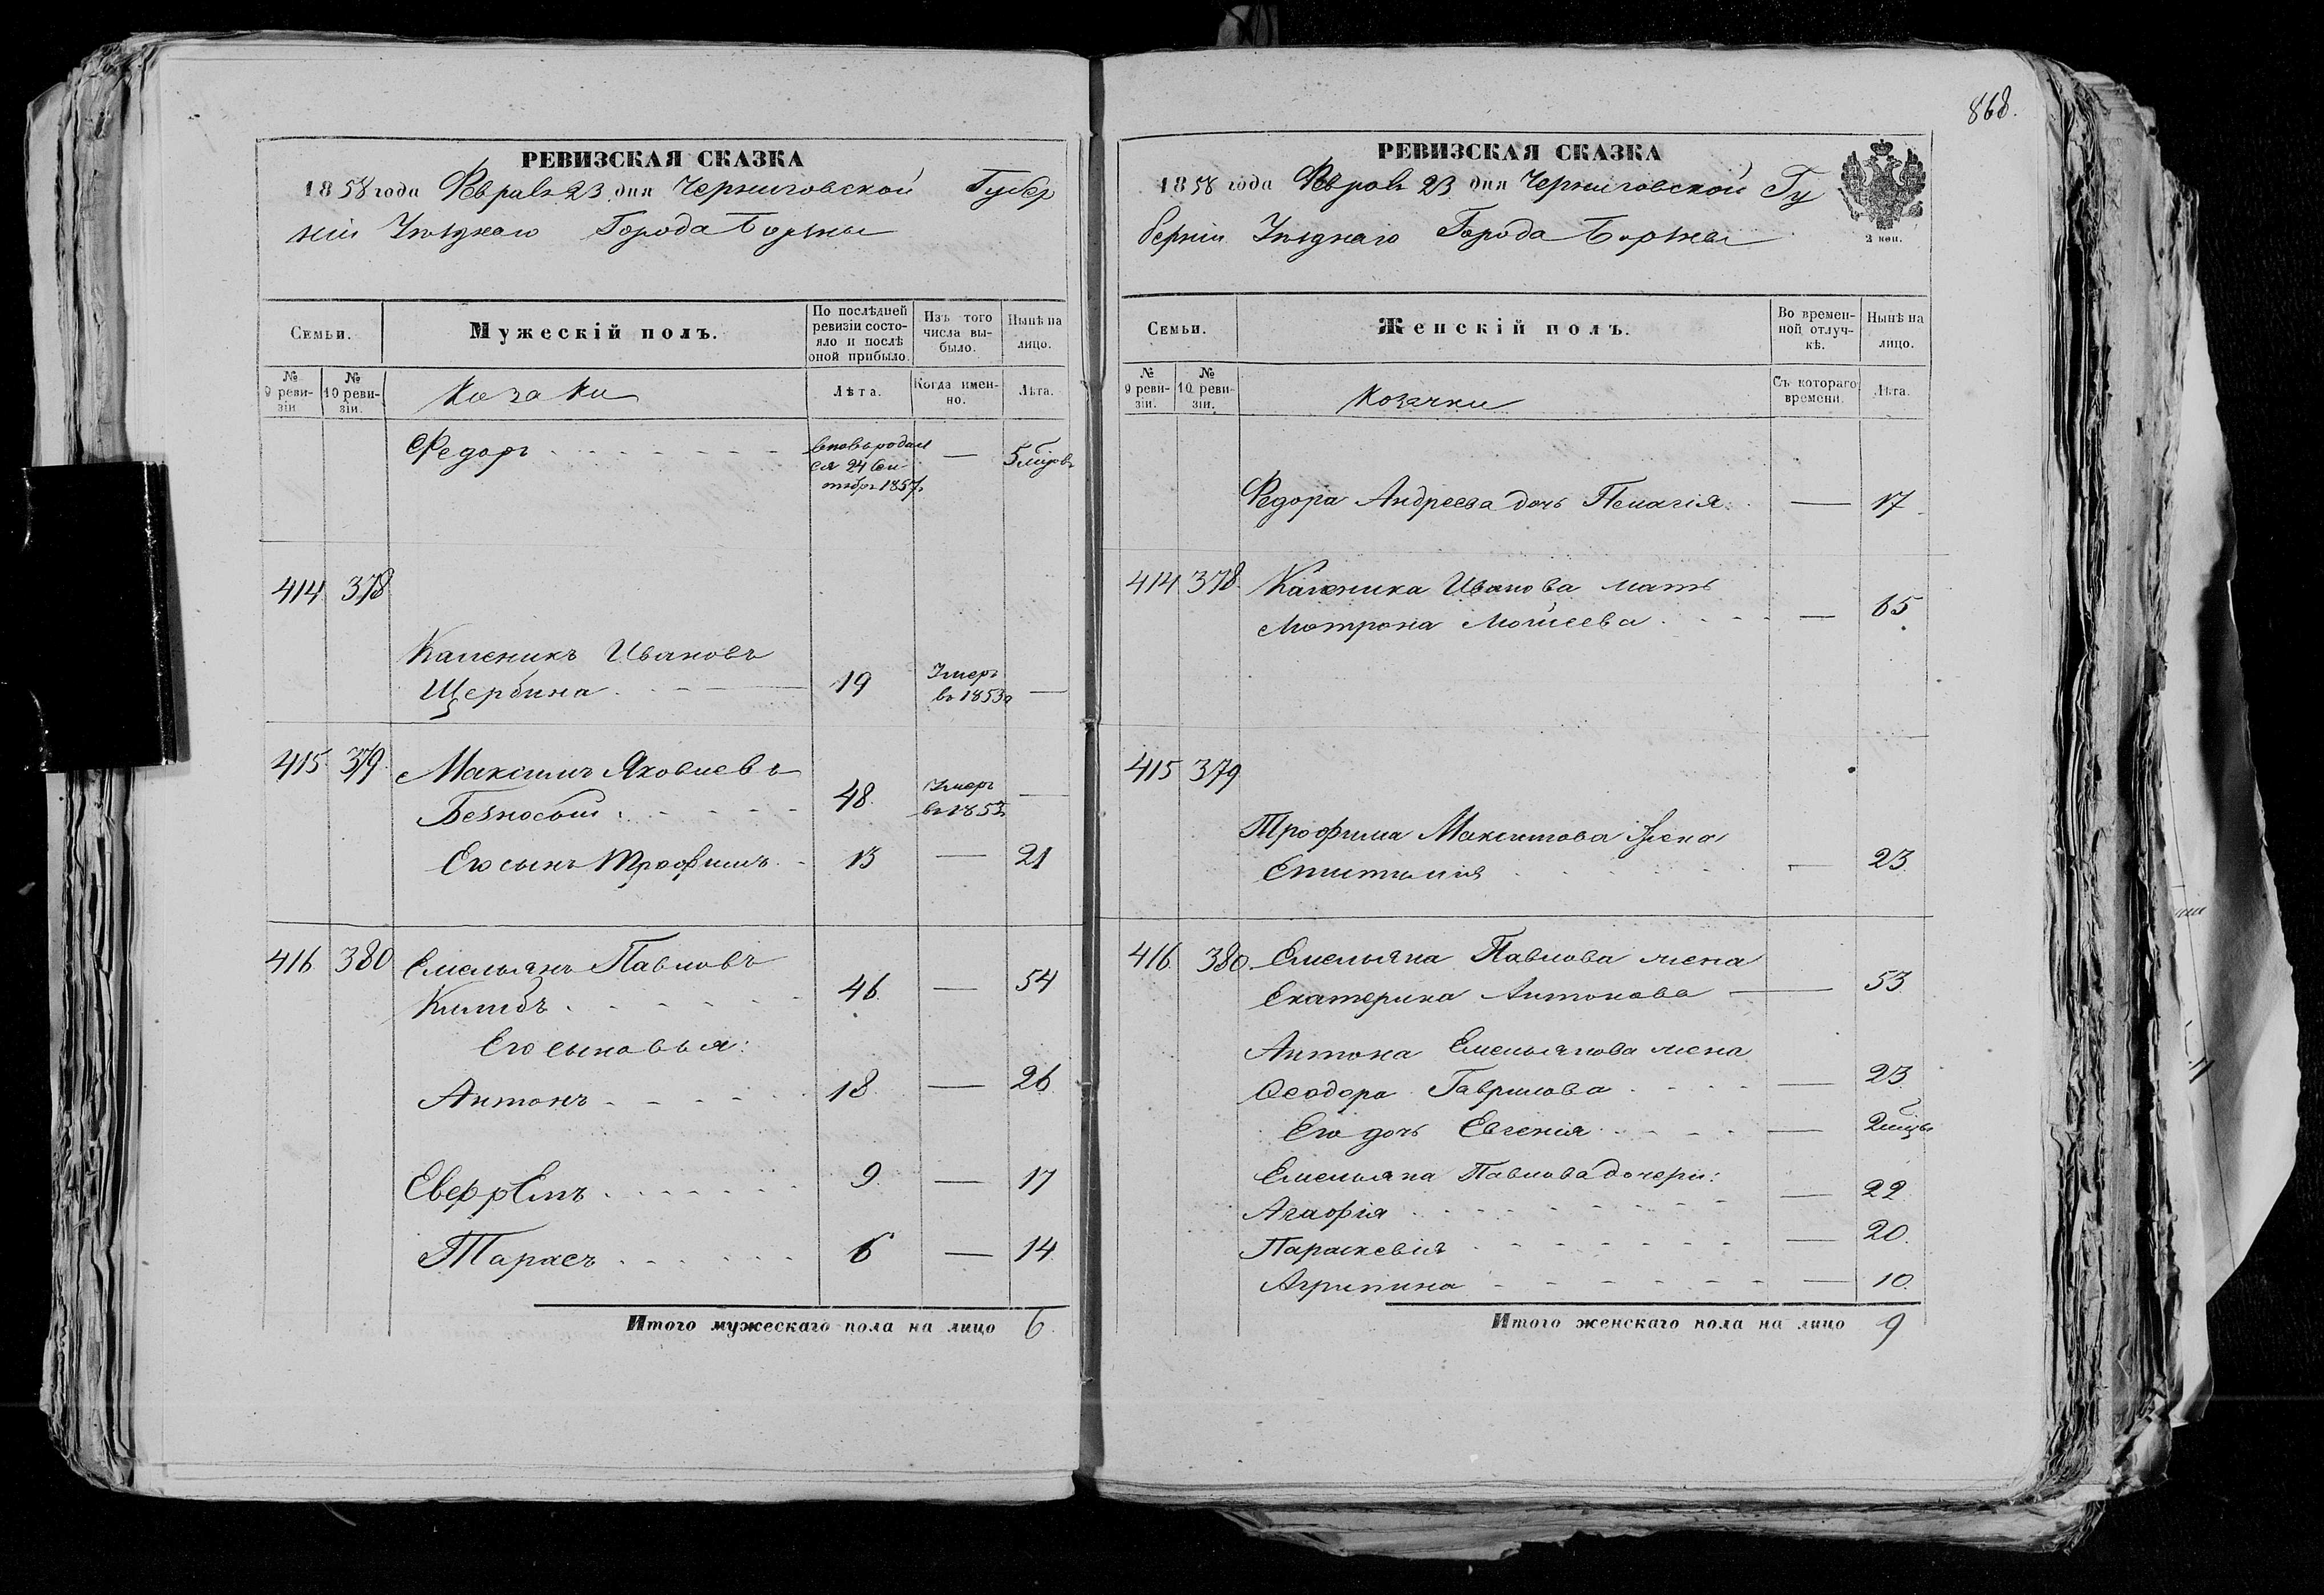 868.
РЕВИЗСКАЯ СКАЗКА
1858 года Феврал 23 дня Черниговской Губер
ніи Уѣзднаго Города Борзны
Семьи.
Мужескій полъ.
По послѣдней ревизіи состояло и послѣ оной прибыло.
Изъ того числа выбыло.
Нынѣ на лицо.
№ 9 ревизіи
№ 10 ревизіи.
Козаки
Лѣта.
Когда именно.
Лѣта.
Федоръ
вновь родил
ся 24 Сен
тября 1857
— 5 мѣсяцовъ
414 378
Каленикъ Ивановъ
Щербина 19 Умеръ в 1853 —
415 379 Максимъ Яковлевъ
Безносый 48. Умеръ в 1853 —
Его сынъ Трофимъ 13 — 21
416 380 Емельянъ Павловъ
46. — 54
Его сыновья:
Антонъ 18. — 26
9. — 17
Тарасъ 6 — 14
Итого мужескаго пола на лицо 6.
РЕВИЗСКАЯ СКАЗКА
1858 года Феврал 23 дня Черниговской Гу
берніи Уѣзднаго Города Борзны
2 коп.
Семьи.
Женскій полъ.
Во временной отлучкѣ.
Нынѣ на лицо.
№ 9 ревизіи.
№ 10 ревизіи.
Козачки
Съ котораго времени.
Лѣта.
Федора Андреева дочь Пелагія. — 17
414 378. Каленика Иванова мать
Мотрона Мойсеева — 65
415 379
Трофима Максимова жена
— 23.
416. 380. Емельяна Павлова жена
Екатерина Антонова — 53
Антона Емельянова жена
Феодора Гаврилова — 23.
Его дочь Евгенія — 2 мѣсяца
Емельяна Павлова дочери:
Агафія — 22
Параскевія — 20.
Агрипина — 10.
Итого женскаго пола на лицо 9